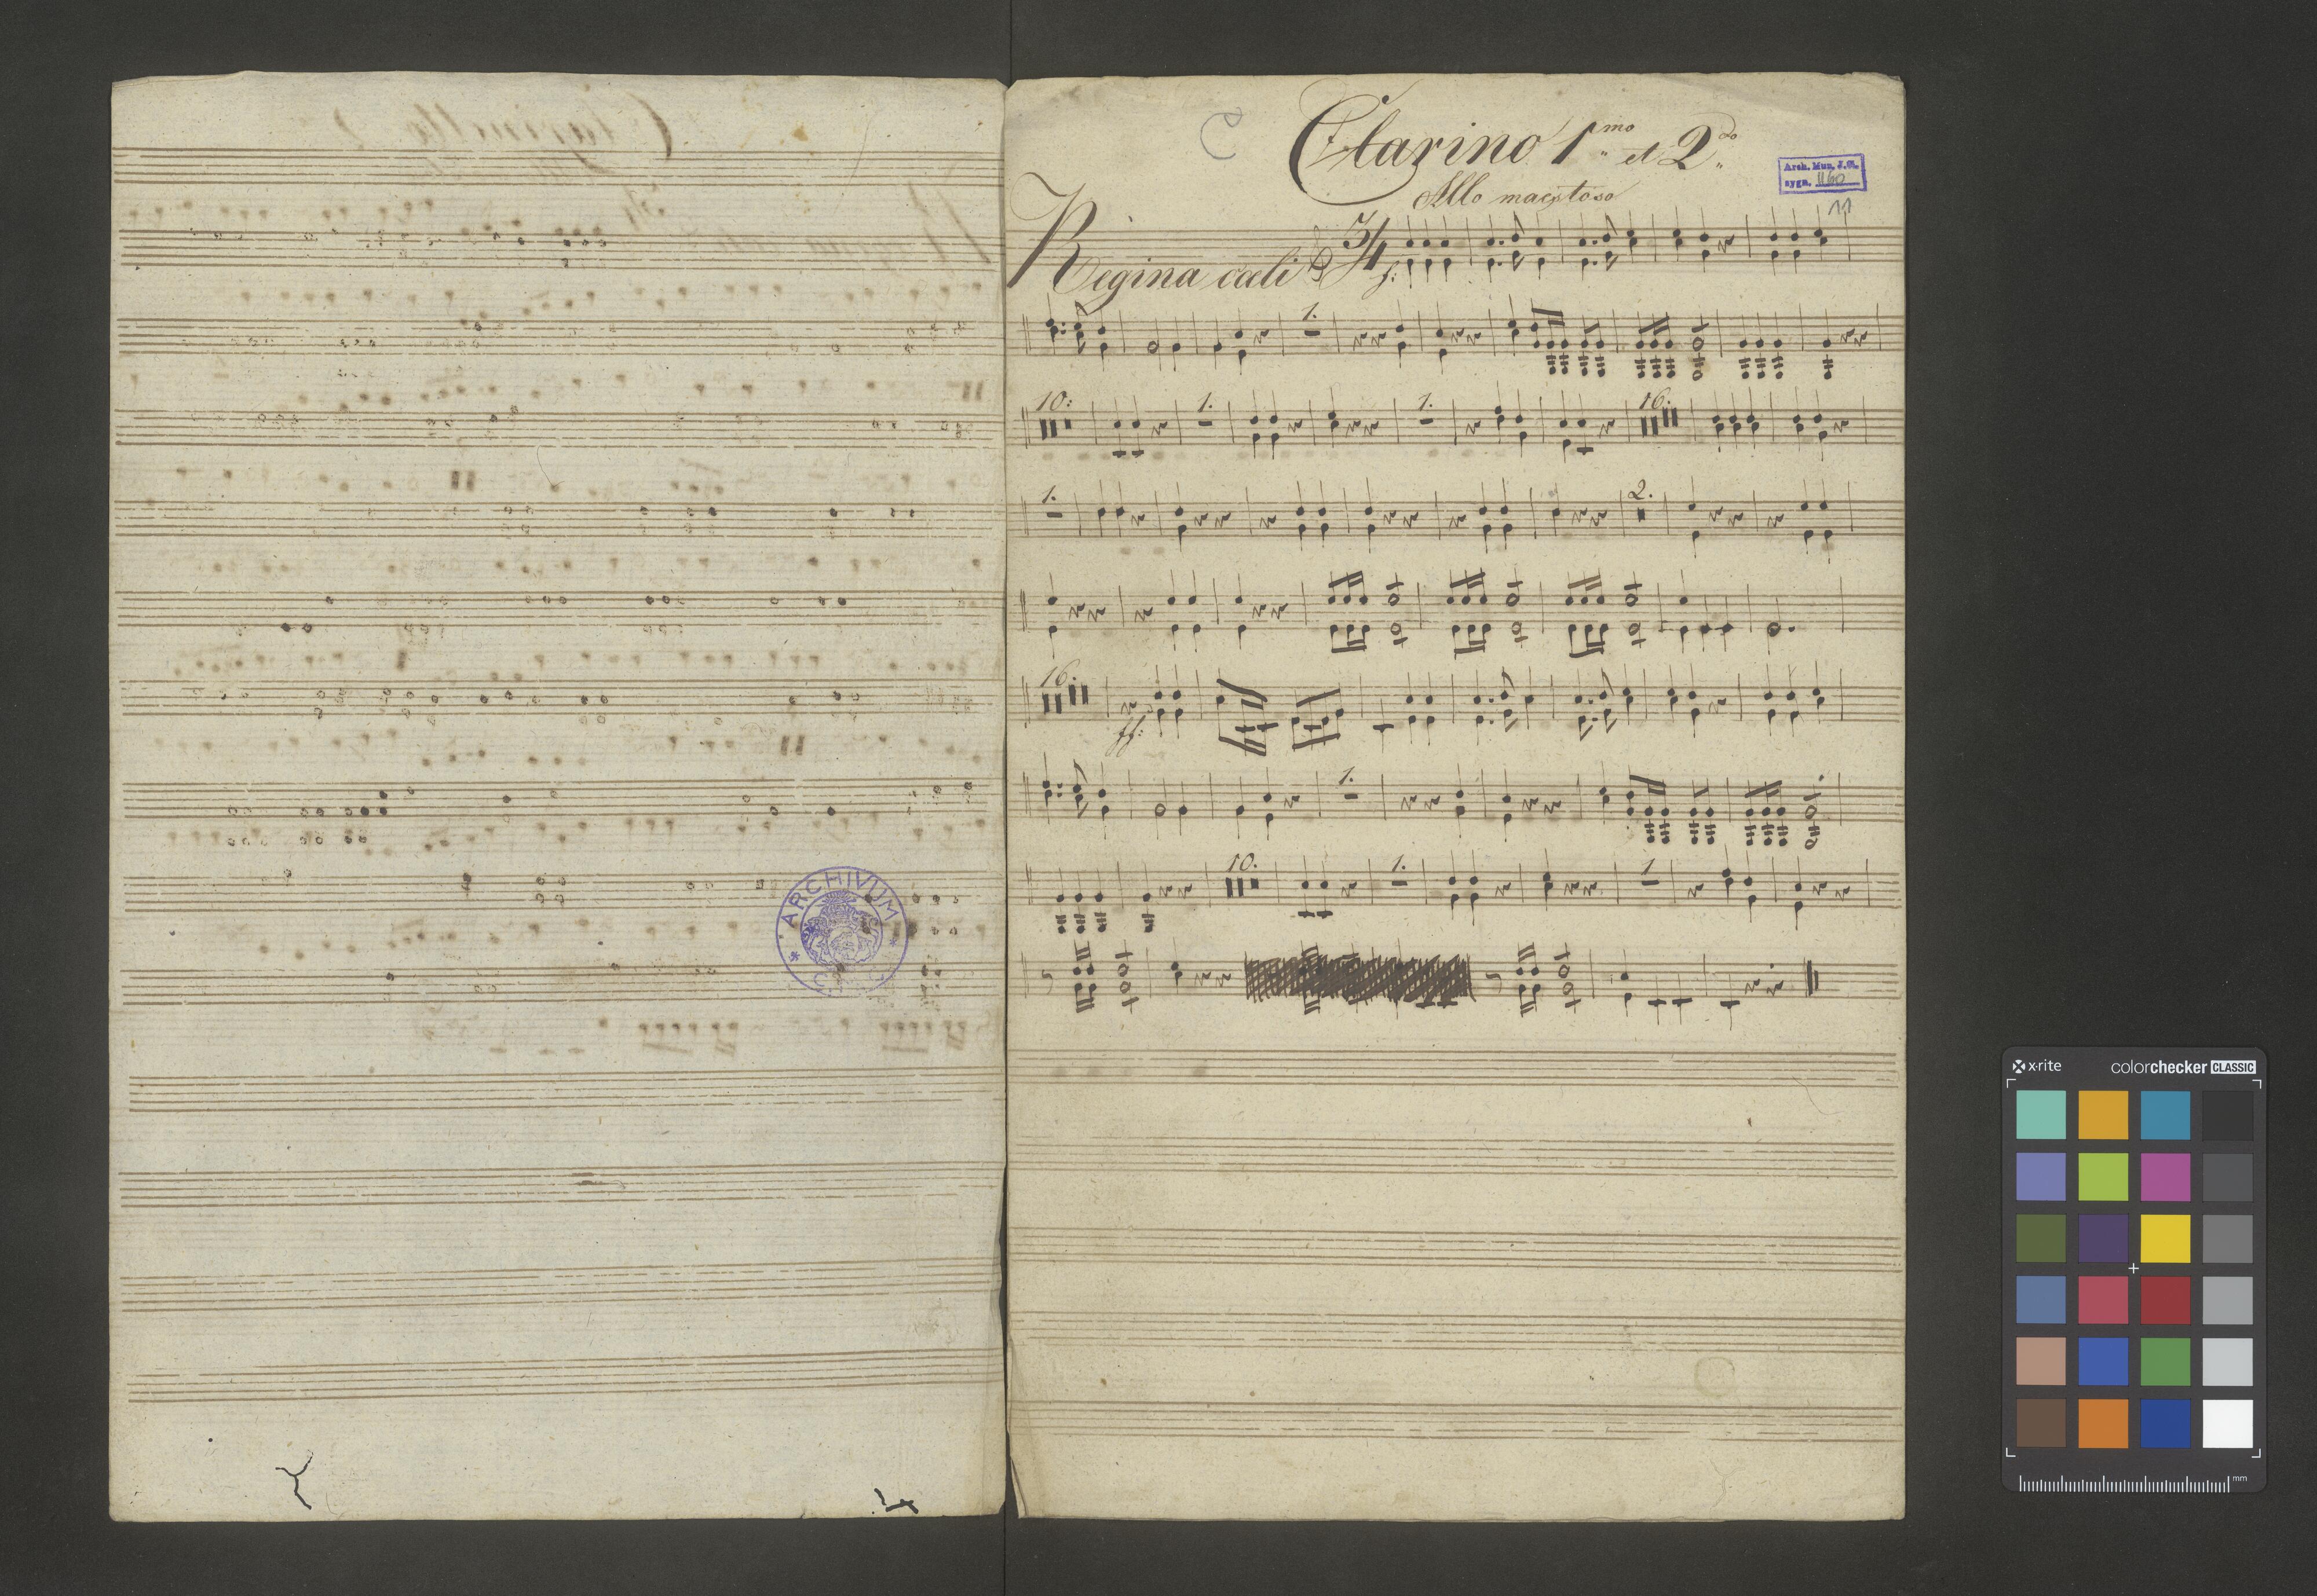 C
Clarino 1mo et 2do
Allo maestoso
Arch. Mus. J. G.
sygn. 1160
11
Regina cæli 3/4 f:
1.
10: 1. 1. 16.
1. 2.
16.
ff:
1.
10. 1. 1
ARCHIVUM
x·rite colorchecker CLASSIC
mm